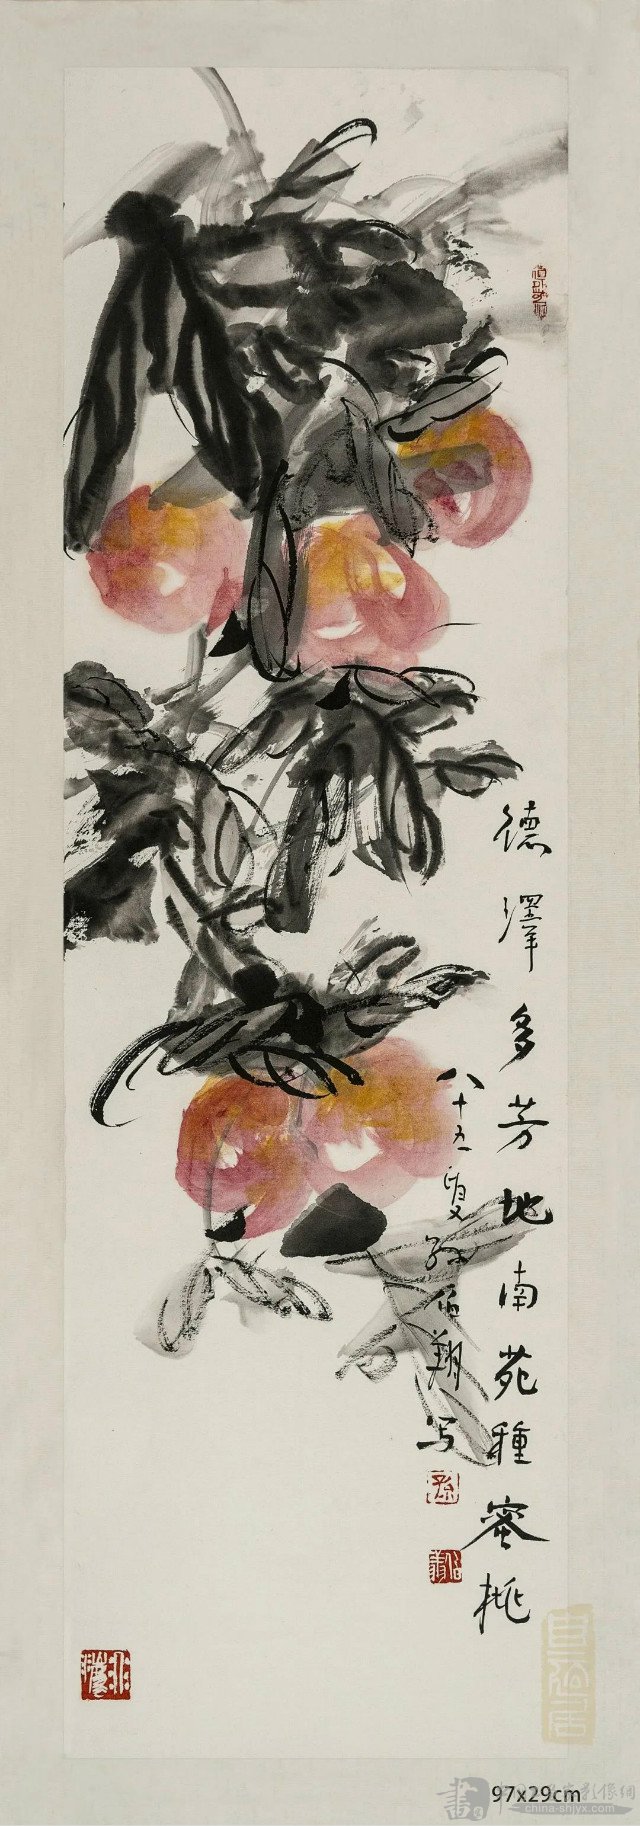 德澤多芳地南苑種蜜桃
八十五叟孫信翔写
97x29cm
china-shjyx.com